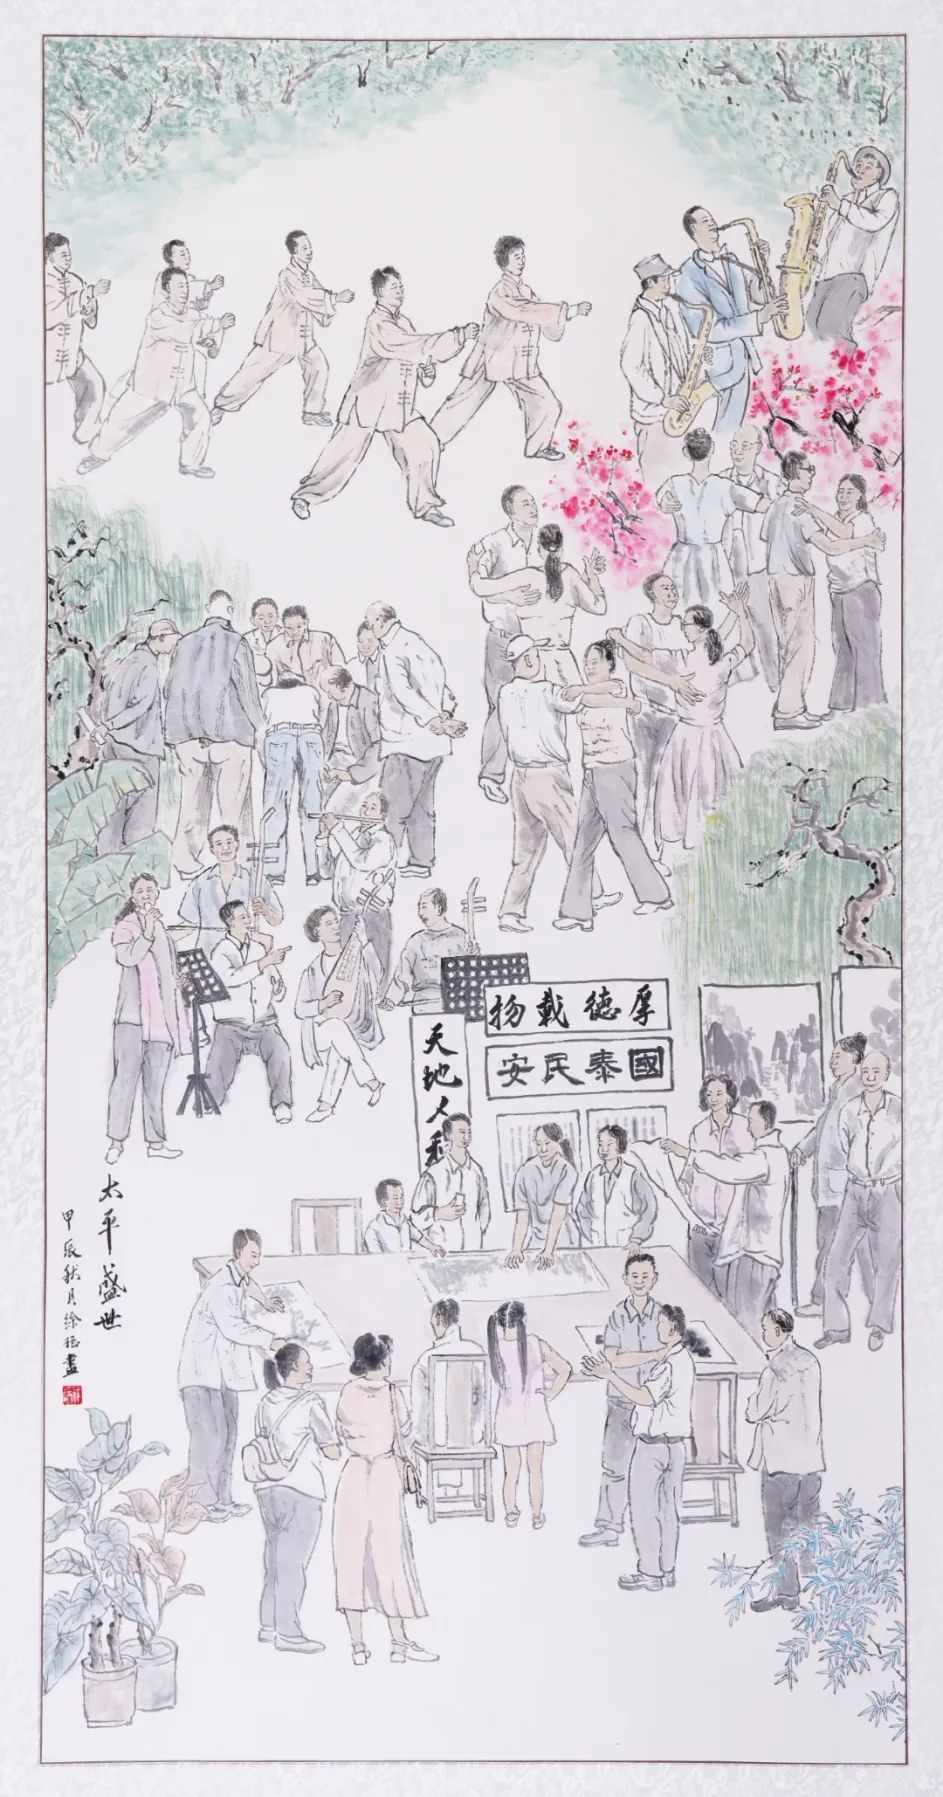 厚德載物
國泰民安
天地人和
太平盛世
甲辰秋月徐畫